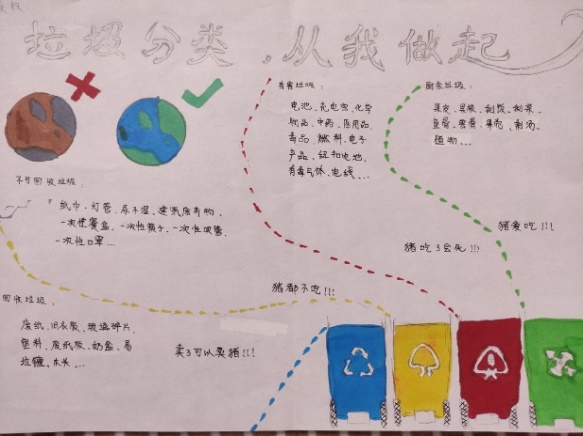 垃圾分类,从我做起
有害垃圾:
电池、充电宝、化学
物品、中药、医用品
毒品、燃料、电子
产品、纽扣电池、
有毒气体、电线...
厨余垃圾:
果皮、果核、剩饭、剩菜
鱼骨、果壳、剩汤、
植物...
不可回收垃圾:
纸巾、灯管、尿不湿、建筑废弃物、
一次性餐盒、一次性筷子、一次性碗筷、
一次性口罩...
猪爱吃!!!
猪吃了会死!!!
猪都不吃!!!
回收垃圾:
废纸、旧衣服、玻璃碎片、
塑料、废纸板、奶盒、易
拉罐、木头...
卖了可以卖猪!!!